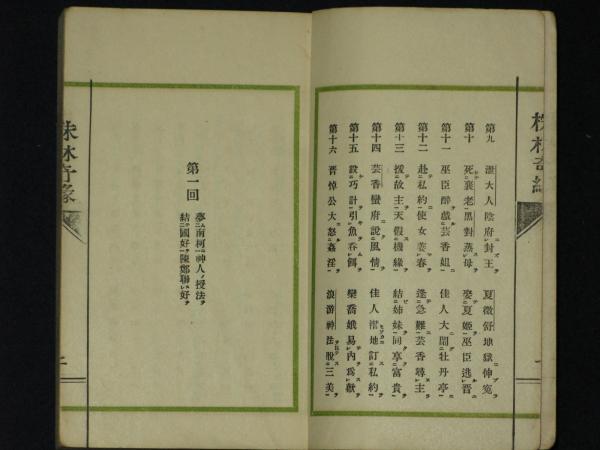 株林奇緣
第九 泄大人陰府封王 夏徵舒地獄伸冤
第十 死襄老黑對蒸母 娶夏姬巫臣逃晋
第十一 巫臣醉戲芸香姐 佳人大鬧牡丹亭
第十二 赴私約使女姜春 逢急難芸香尋主
第十三 援故主天假機緣 結姉妹同享富貴
第十四 芸香蠻府說風情 佳人潛地訂私約
第十五 設巧計引魚呑餌 欒喬娥易內爲歡
第十六 晋悼公大怒姦淫 浪游神法脫三美
第一回
夢南柯神人授法
結國好陳鄭聯好
株林奇緣